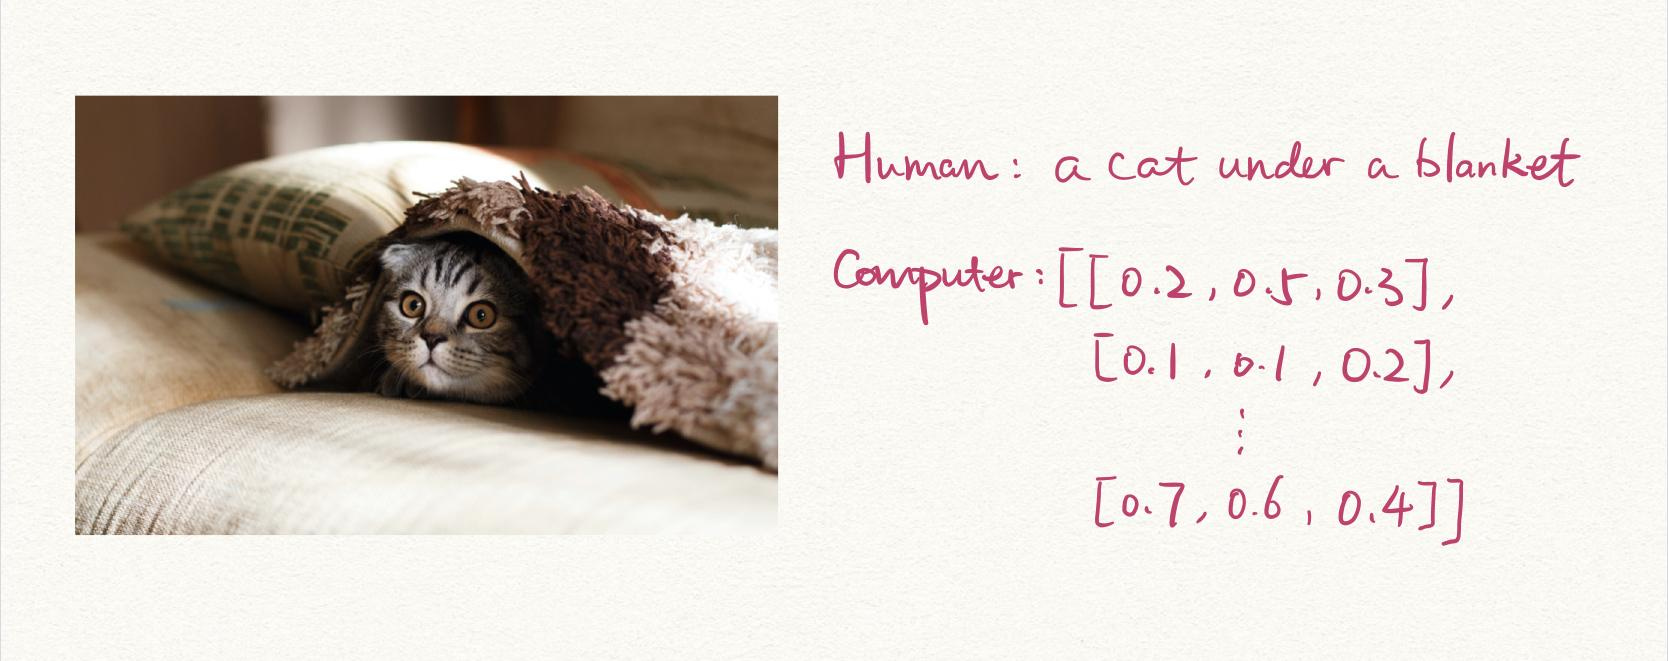 Human: a cat under a blanket
Computer: [[0.2, 0.5, 0.3],
[0.1, 0.1, 0.2],
⋮
[0.7, 0.6, 0.4]]